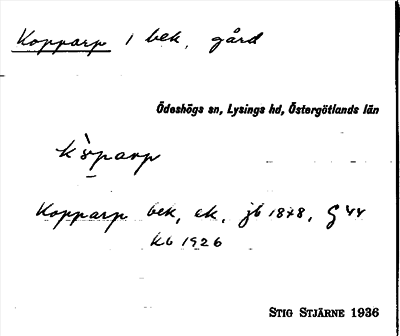 Kopparp 1 bek, gård
Ödeshögs sn, Lysings hd, Östergötlands län
Kopparp bek, ek, jb 1878, G 44
kb 1926
STIG STJÄRNE 1936